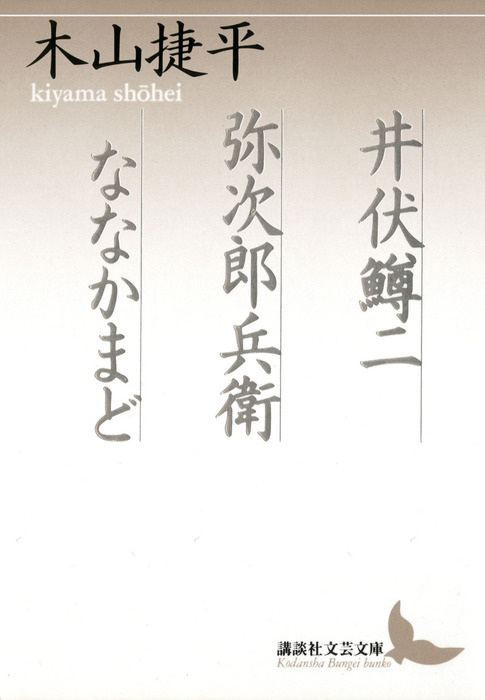 木山捷平
kiyama shōhei
井伏鱒二
弥次郎兵衛
ななかまど
講談社文芸文庫
Kōdansha Bungei bunko